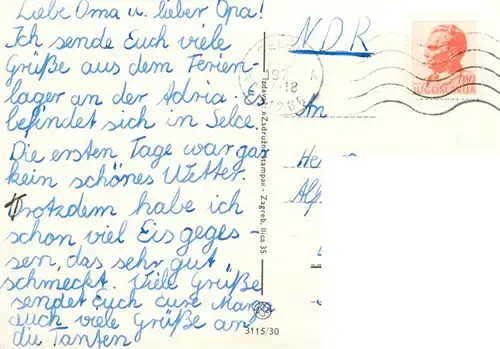 Liebe Oma u. lieber Opa!
Ich sende Euch viele
Grüße aus dem Ferien-
lager an der Adria. Es
befindet sich in Selce.
Die ersten Tage war gar
kein schönes Wetter.
Trotzdem habe ich
schon viel Eis geges-
sen, das sehr gut
schmeckt. Viele Grüße
sendet Euch eure Manja
auch viele Grüße an
die Tanten
Izdavač: »Zadružna štampa« - Zagreb, Ilica 35
3115/30
NDR
JUGOSLAVIJA
An